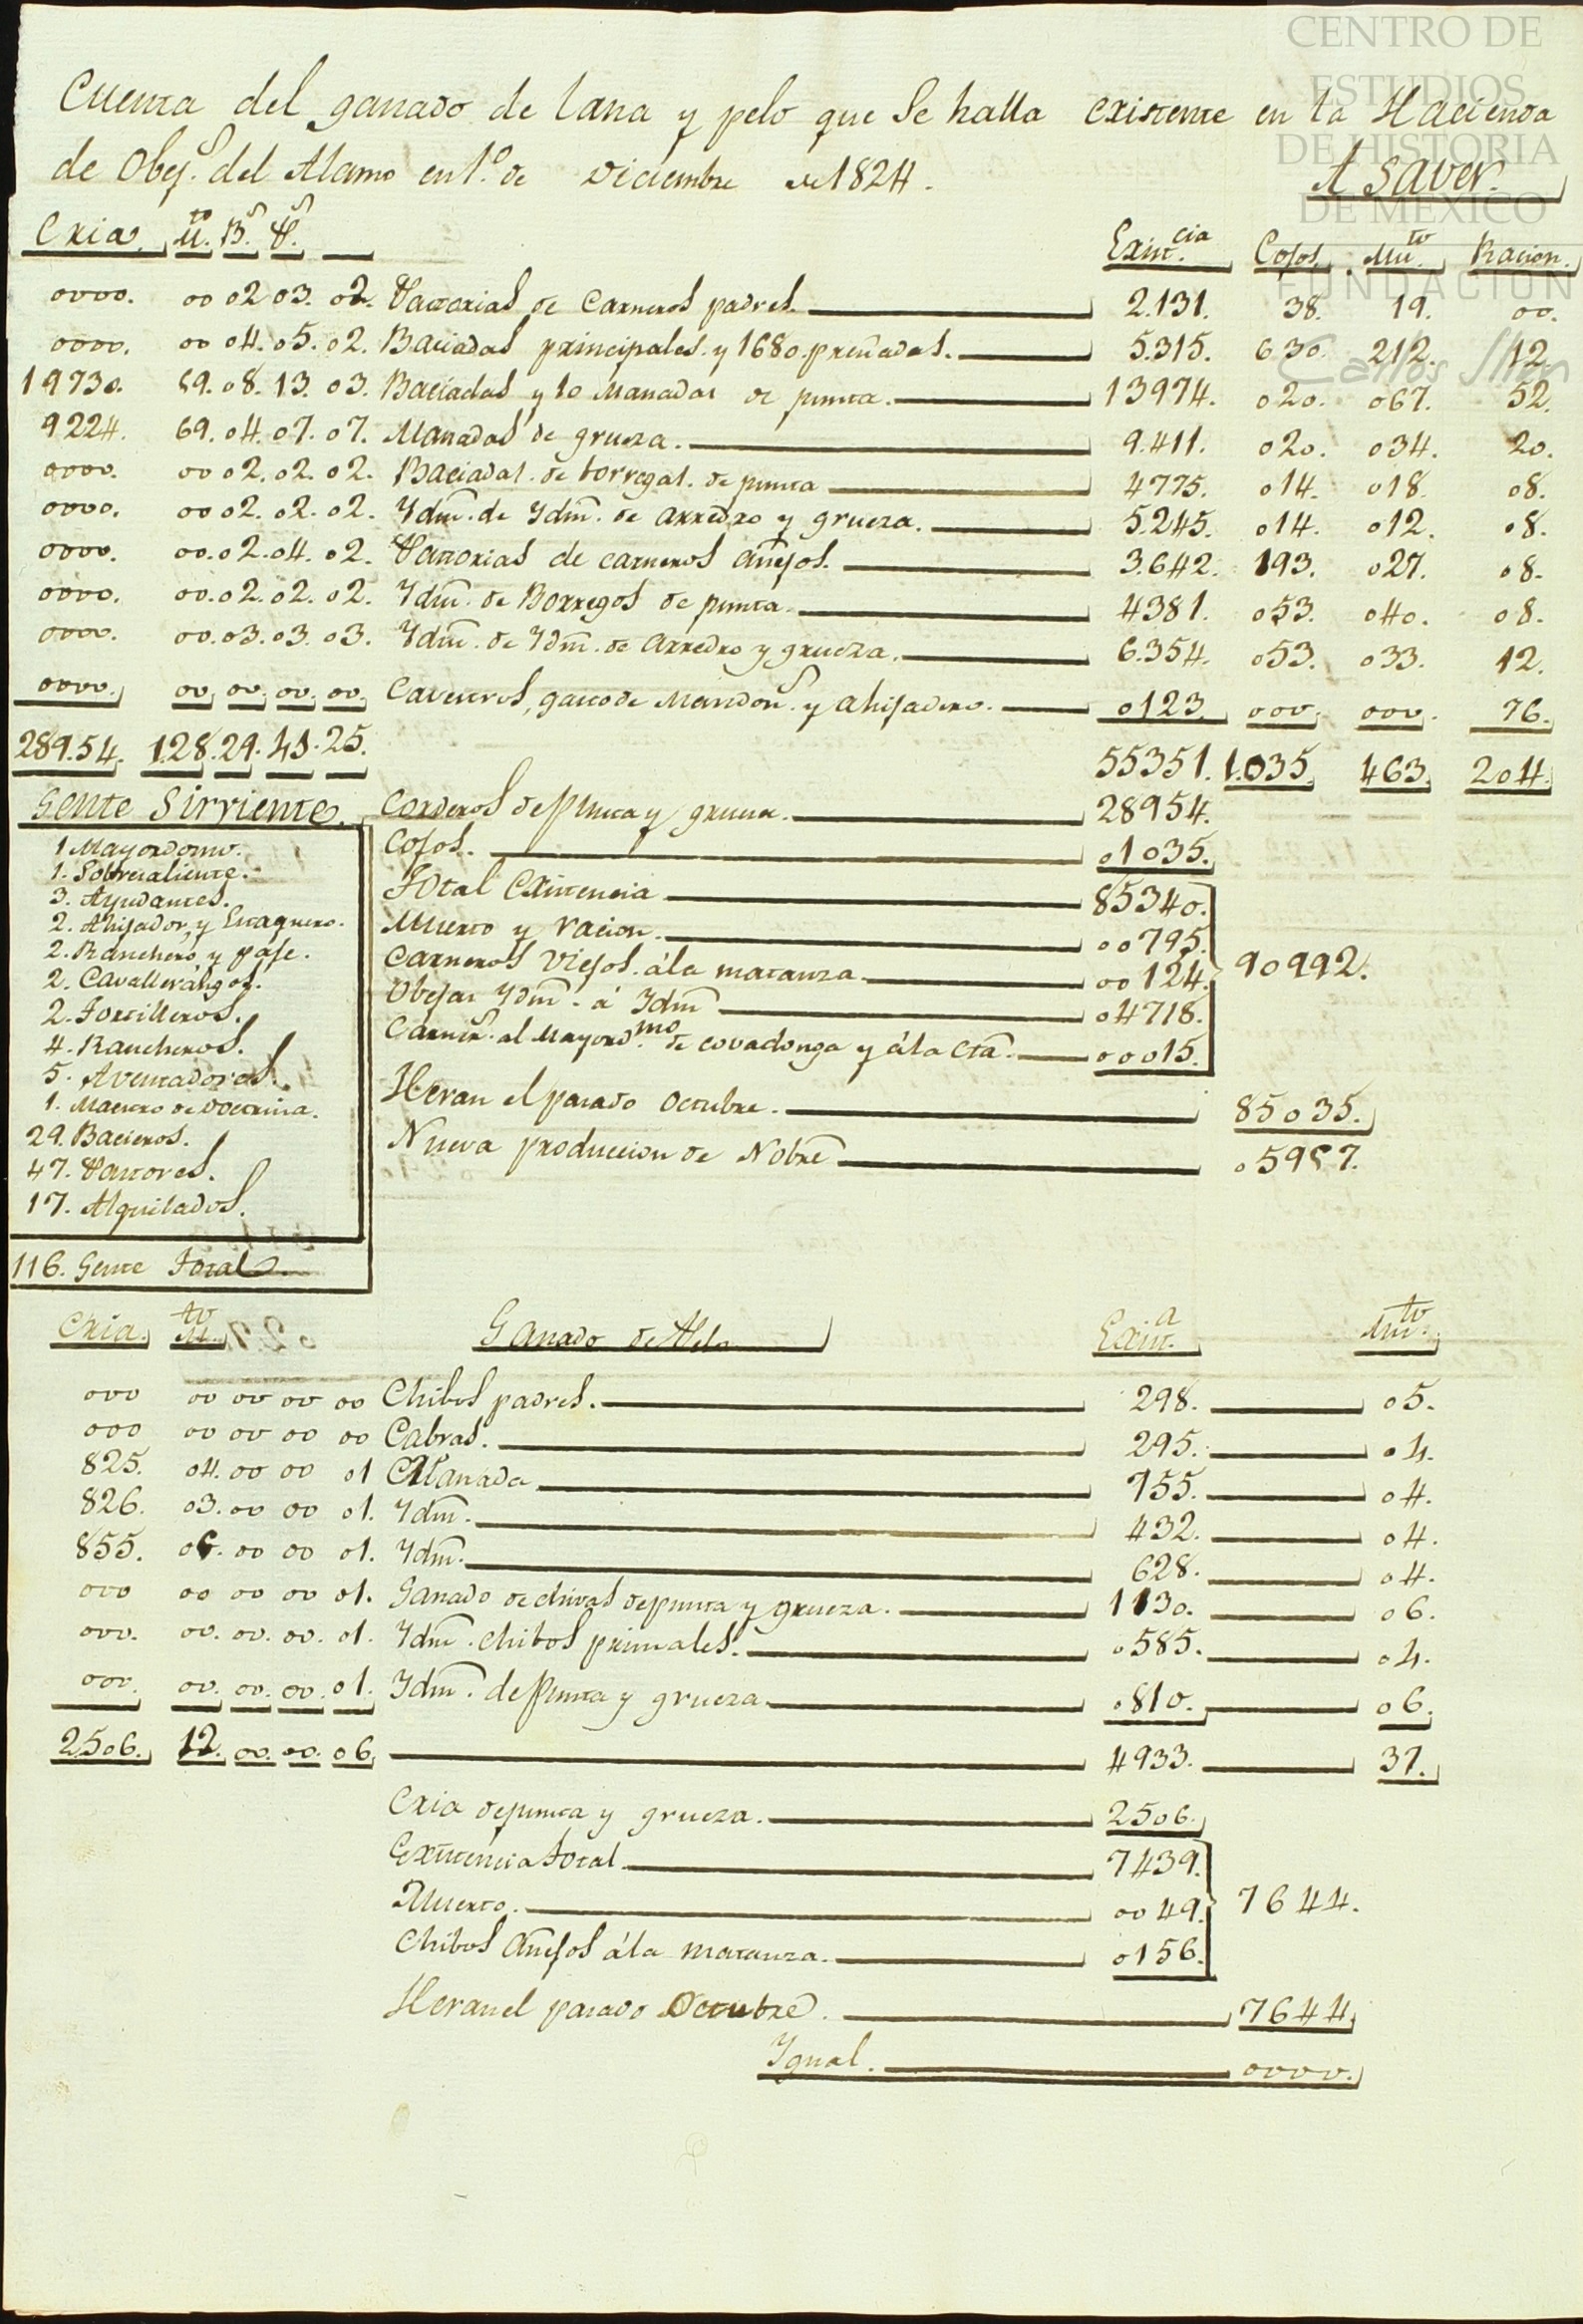 CENTRO DE
ESTUDIOS
DE HISTORIA
DE MEXICO
FUNDACION
Carlos Slim
Cuenta del ganado de lana y pelo que se halla existente en la Hacienda
de Obej.s del Alamo en 1.o de Diciembre de 1824.
A saver.
Cria. M.to B.s P.s Exist.cia Cojos. Mu.to Racion.
0000. 00 02 03. 02. Pastorias de Carneros padres. 2.131. 38. 19. 00.
0000. 00 04. 05. 02. Baciadas principales. y 1680. preñadas. 5.315. 630. 212. 12.
19730. 59. 08. 13. 03. Baciadas y 10 Manadas de punta. 13974. 020. 067. 52.
9224. 69. 04. 07. 07. Manadas de grueza. 9.411. 020. 034. 20.
0000. 00 02. 02. 02. Baciadas. de borregas. de punta 4775. 014. 018. 08.
0000. 00 02. 02. 02. Ydm. de Ydm. de arredro y grueza. 5.245. 014. 012. 08.
0000. 00. 02. 04. 02. Pastorias de carneros añejos. 3.642. 193. 027. 08.
0000. 00. 02. 02. 02. Ydm. de Borregos de punta. 4381. 053. 040. 08.
0000. 00. 03. 03. 03. Ydm. de Ydm. de arredro y grueza. 6.354. 053. 033. 12.
0000. 00. 00. 00. 00. Cavestros, gasto de Mandon.s y ahijadero. 0123. 000. 000. 76.
289.54. 128. 29. 41. 25. 55351. 1.035. 463. 204.
Gente Sirviente.
1 Mayordomo.
1. Sobresaliente.
3. Ayudantes.
2. Ahijador, y Estaquero.
2. Ranchero, y paje.
2. Cavallerangos.
2. Tortilleros.
4. Rancheros.
5. Aventadores.
1. Maestro de Doctrina.
29. Bacieros.
47. Pastores.
17. Alquilados.
116. Gente Total.
Corderos de punta y grueza. 28954.
Cojos. 01035.
Total Existencia 85340.
Muerto y racion. 00795.
Carneros viejos. á la matanza. 00124. 90992.
Obejas Ydm. á Ydm 04718.
Carner.s al Mayord.mo de covadonga y á la cta. 00015.
Heran el pasado Octubre. 85035.
Nueva produccion de Nobre 05957.
Cria. M.to Ganado de Pelo Exist.a Mu.to
000 00 00 00 00 Chibos padres. 298. 05.
000 00 00 00 00 Cabras. 295. 04.
825. 04. 00 00 01 Manada 755. 04.
826. 03. 00 00 01. Ydm. 432. 04.
855. 05. 00 00 01. Ydm. 628. 04.
000 00 00 00 01. Ganado de chivas de punta y grueza. 1130. 06.
000. 00. 00. 00. 01. Ydm. chibos primales. 0585. 04.
000. 00. 00. 00. 01. Ydm. de punta y grueza 0810. 06.
2506. 12. 00. 00. 06. 4933. 37.
Cria de punta y grueza. 2506.
Existencia total 7439.
Muerto. 0049. 7644.
Chibos añejos á la matanza. 0156.
Heran el pasado Octubre. 7644.
Ygual. 0000.